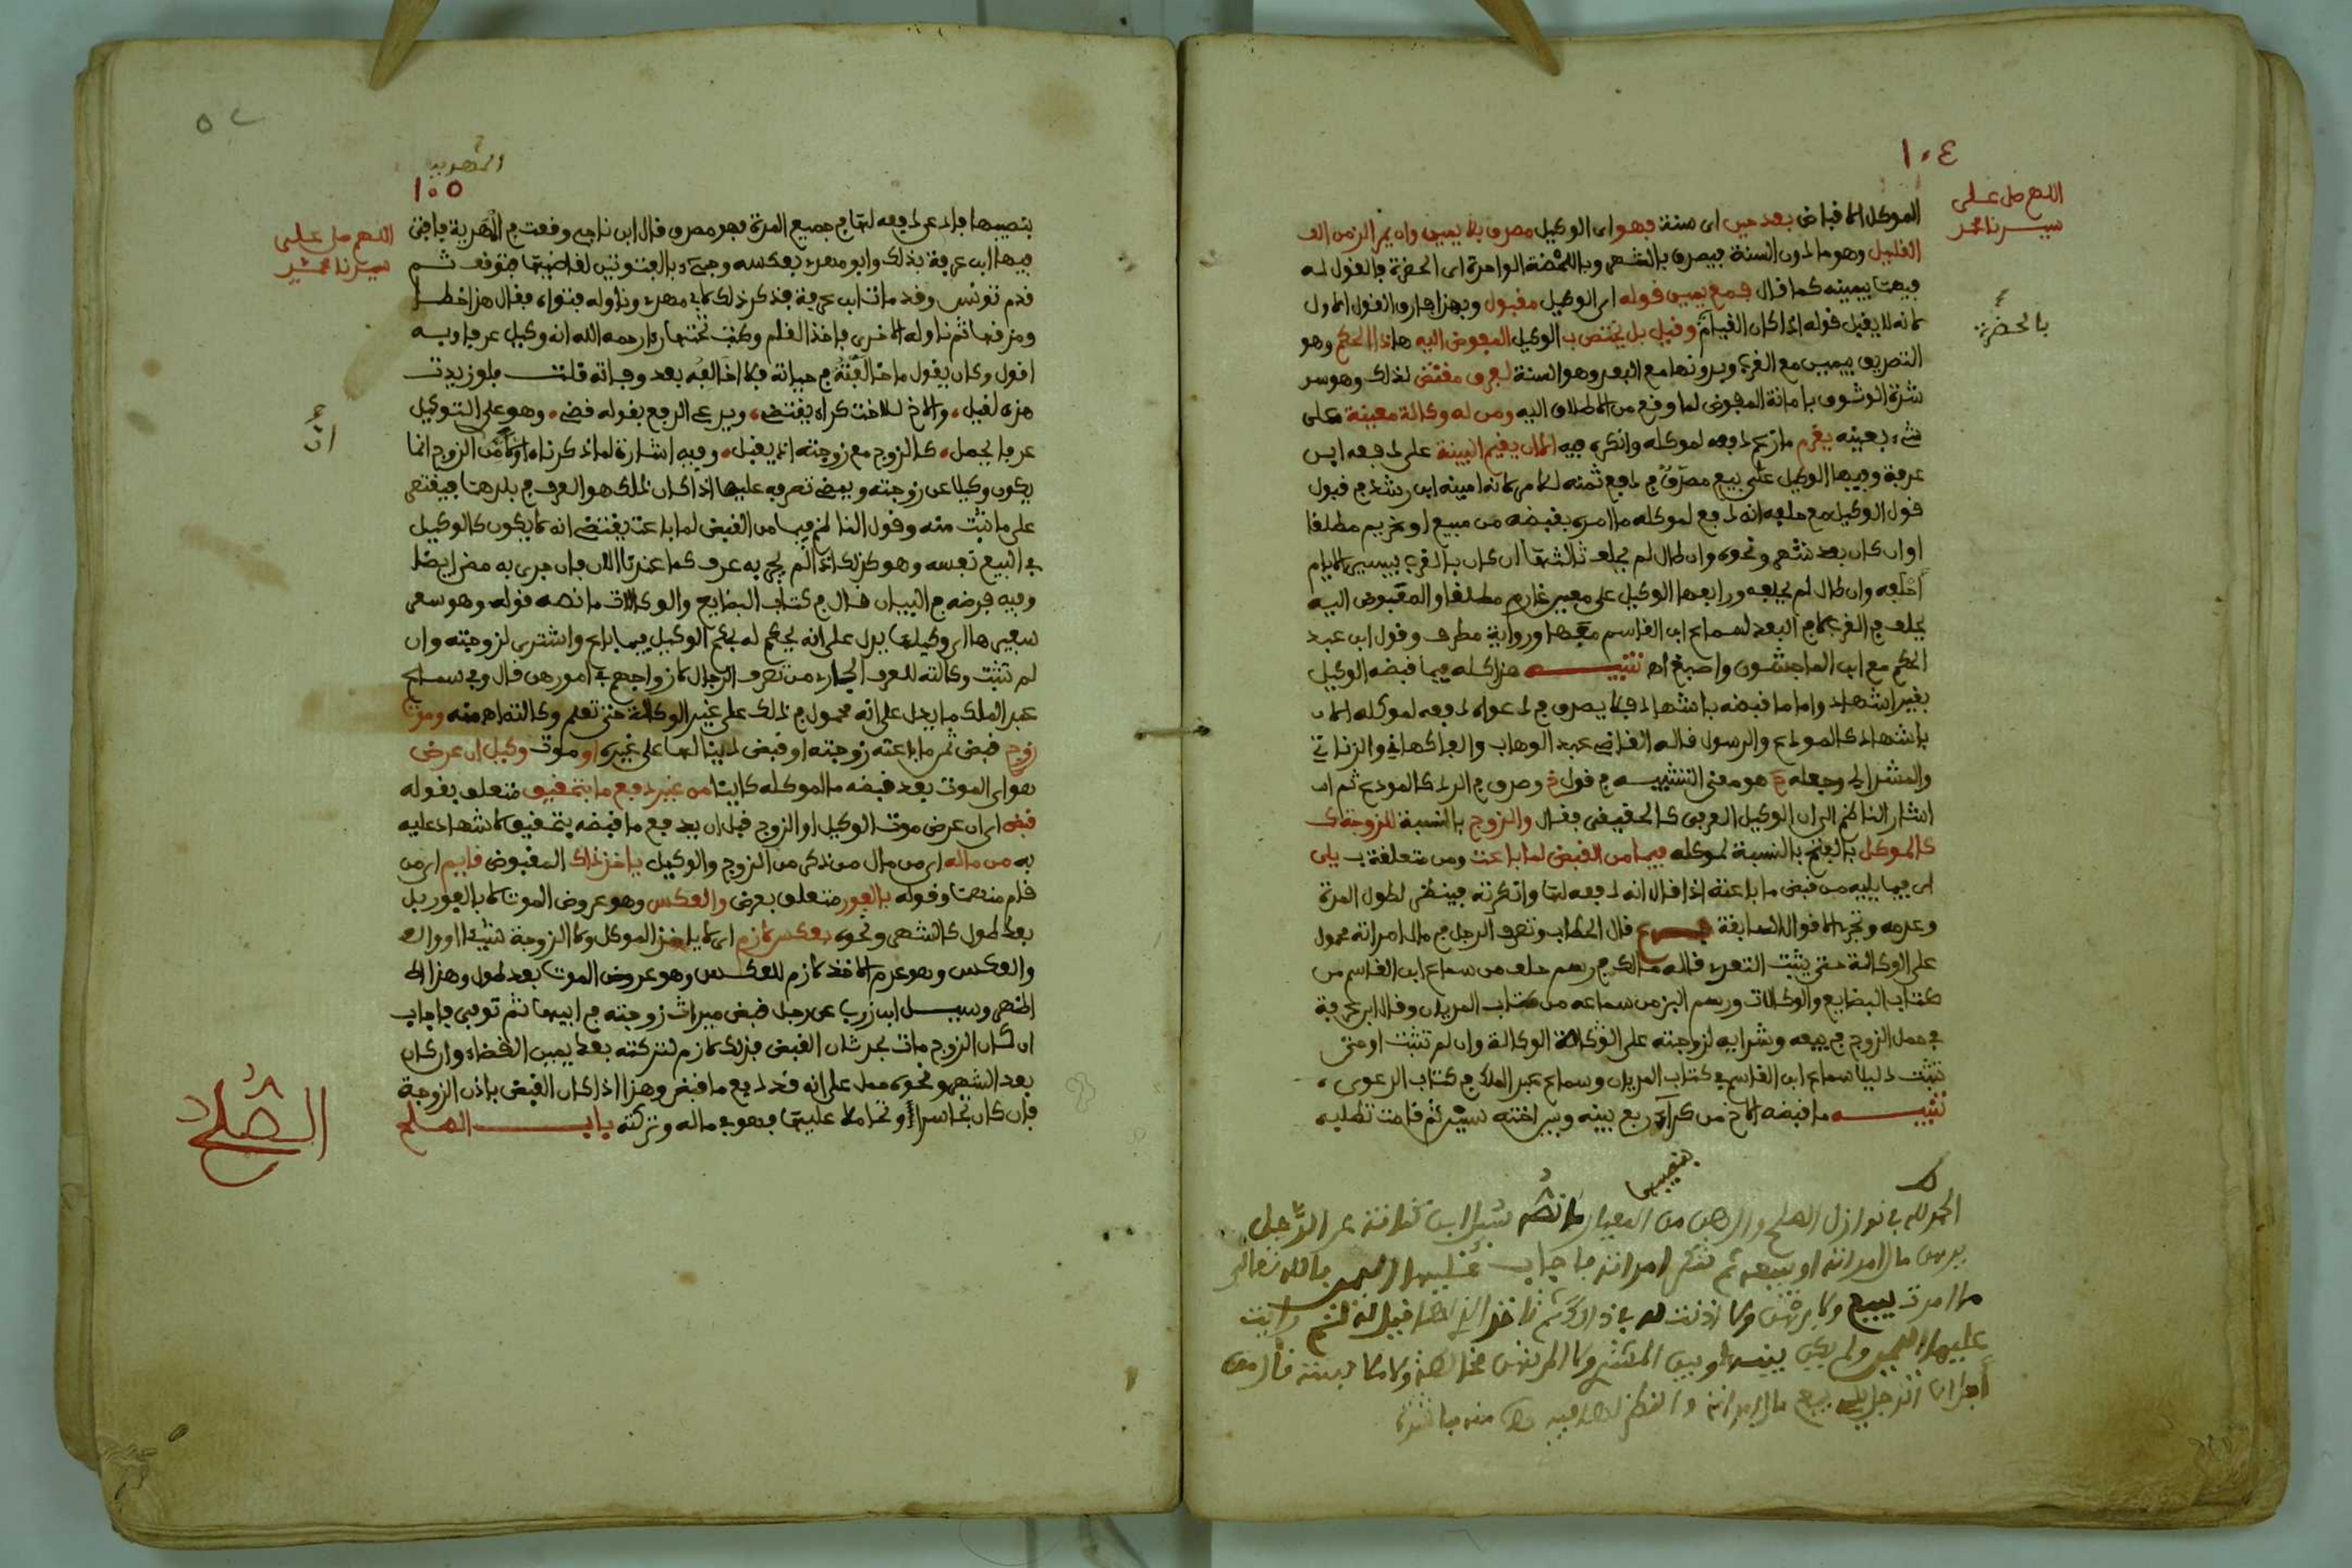 ١٠٤
اللهم صل على
سيدنا محمد
الموكل الاقباض بعد حين اى سنة فهو اى الوكيل مصدق بلا يمين وان يمر الزمن
القليل وهو ما دون السنة فيصدق بالشهر وباللحظة الواحدة اى الحضرة فالقول له
فيهما بيمينه كما قال فمع يمين قوله اى الوكيل مقبول وبهذا فارق القول الاول
بالحضرة
لانه لا يقبل قوله اذا كان القيام وقيل بل يختص ب الوكيل المفوض اليه هاذا الحكم وهو
التصديق بيمين مع القرب وبدونها مع البعد وهو السنة لعرف مقتض لذلك وهو سر
شدة الوثوق بامانة المفوض لما وقع من الاطلاق اليه ومن له وكالة معينة على
شيء بعينه يغرم ما زعم دفعه لموكله وانكره فيه الا ان يقيم البينة على دفعه ابن
عرفة وفيها الوكيل على بيع مصدق في دفع ثمنه للامر لانه امينه ابن رشد في قبول
قول الوكيل مع حلفه انه دفع لموكله ما امره بقبضه من مبيع او غريم مطلقا
او ان كان بعد شهر ونحوه وان طال لم يحلف ثالثها ان كان بالقرب بيسير الايام
احلف وان طال لم يحلف ورابعها الوكيل على معين غارم مطلقا والمفوض اليه
يحلف في القرب لا في البعد لسماع ابن القاسم معها ورواية مطرف وقول ابن عبد
الحكم مع ابن الماجشون واصبغ اهـ تنبيه هذا كله فيما قبضه الوكيل
بغير اشهاد واما ما قبضه باشهاد فلا يصدق في دعواه دفعه لموكله الا
باشهاد كالمودع والرسول قاله القاضي عبد الوهاب والفاكهاني والزناتي
والمشدالي وجعله هو معنى التشبيه في قول وصدق في الرد كالمودع ثم ان
اشار الناظم الى ان الوكيل العرفي كالحقيقي فقال والزوج بالنسبة للزوجة ك
كالموكل بالفتح بالنسبة لموكله فيما من القبض لما باعت ومن متعلقة ب يلي
اى فيما يليه من قبض ما باعته اذا قال انه دفعه لها وانكرته فينظر لطول المدة
وعدمه وتجري الاقوال السابقة فرع قال الحطاب وتصرف الرجل في مال امراته محمول
على الوكالة حتى يثبت التعدي قاله مالك في رسم حلف من سماع ابن القاسم من
كتاب البضايع والوكالات ورسم البز من سماعه من كتاب المديان وقال ابن عرفة
في حمل الزوج في بيعه وشرايه لزوجته على الوكالة وان لم تثبت او حتى
تثبت دليلا سماع ابن القاسم في كتاب المديان وسماع عبد الملك في كتاب الدعوى
تنبيه ما قبضه الاخ من كراء ربع بينه وبين اخته سنين ثم قامت تطلبه
بنصيبها
الحمد لله في نوازل الصلح والرهن من المعيار ما نصه سئل ابن كنانة عن الرجل
يرهن مال امراته او يبيعه ثم تنكر امراته فاجاب عليها اليمين بالله تعالى
ما امرت ببيع ولا برهن ولا اذنت له في ذلك ثم تاخذ
عليها اليمين ولم يكن بينها وبين المشتري ولا المرتهن مخالطة ولا ملابسة قال من
اجل ان الرجل يلي بيع مال امراته والنظر لها فيه اهـ منه باختصار
٥٢
المهدية
١٠٥
اللهم صل على
سيدنا محمد
بنصيبها فادعى دفعه لها في جميع المدة فهو مصدق قال ابن ناجي وقعت في المهدية فافتى
فيها ابن عرفة بذلك وابو مهدي بعكسه وجيء بالفتوتين لقاضيها فتوقف ثم
قدم تونس وقد مات ابن عرفة فذكر ذلك لابي مهدي وناوله فتواه فقال هذا خط
ومزقها ثم ناوله الاخرى فاخذ القلم وكتب تحتها رءا رحمه الله انه وكيل عرفا وبه
اقول وكان يقول ما خالفته في حياته فلا اخالفه بعد وفاته قلت فلو زيدت
هذه لقيل والاخ للاخت كراه يقتضى ويدعى الدفع بقوله قضى وهو على التوكيل
ان
عرفا يحمل كالزوج مع زوجته اذ يقبل وفيه اشارة لما ذكرناه اولا من ان الزوج انما
يكون وكيلا عن زوجته ويمضى تصرفه عليها اذا كان ذلك هو العرف في بلدهما فيقتصر
على ما ثبت منه وقول الناظم فيما من القبض لما باعت يقتضى انه لا يكون كالوكيل
في البيع نفسه وهو كذلك اذا لم يجر به عرف كما عندنا الان فان جرى به مضى ايضا
وفيه فرضه في البيان قال في كتاب البضايع والوكالات ما نصه قوله وهو سعى
سفيرها اى وكيلها يدل على انه يحكم له بحكم الوكيل فيما باع واشترى لزوجته وان
لم تثبت وكالته للعرف الجاري من تصرف الرجال لازواجهم في امورهن قال وفي سماع
عبد الملك ما يدل على انه محمول في ذلك على غير الوكالة حتى تعلم وكالته اهـ منه وموت
زوج قبض ثمن ما باعته زوجته او قبض دينا لها على غيره او موت وكيل ان عرض
هو اى الموت بعد قبضه ما لموكله كاينا من غير دفع ما بتحقيق متعلق بقوله
قبض اى ان عرض موت الوكيل او الزوج قبل ان يدفع ما قبضه بتحقيق لاشهاد عليه
به من ماله اى من مال من ذكر من الزوج والوكيل ياخذ ذاك المقبوض قايم اى من
قام منهما وقوله بالفور متعلق بعرض والعكس وهو عروض الموت لا بالفور بل
بعد طول كالشهر ونحوه بعكس لازم اى لا ياخذ الموكل ولا الزوجة شيئا
والعكس وهو عدم الاخذ لازم للعكس وهو عروض الموت بعد طول وهذا
اظهر وسئل ابن زرب عن رجل قبض ميراث زوجته في ابيها ثم توفي فاجاب
ان كان الزوج مات بحدثان القبض فذلك لازم لتركته بعد يمين القضاء وان كان
بعد الشهر ونحوه حمل على انه قد دفع ما قبض وهذا اذا كان القبض باذن الزوجة
فان كان تجاسرا او تحاملا عليها فهو في ماله وتركته باب الصلح
الصلح